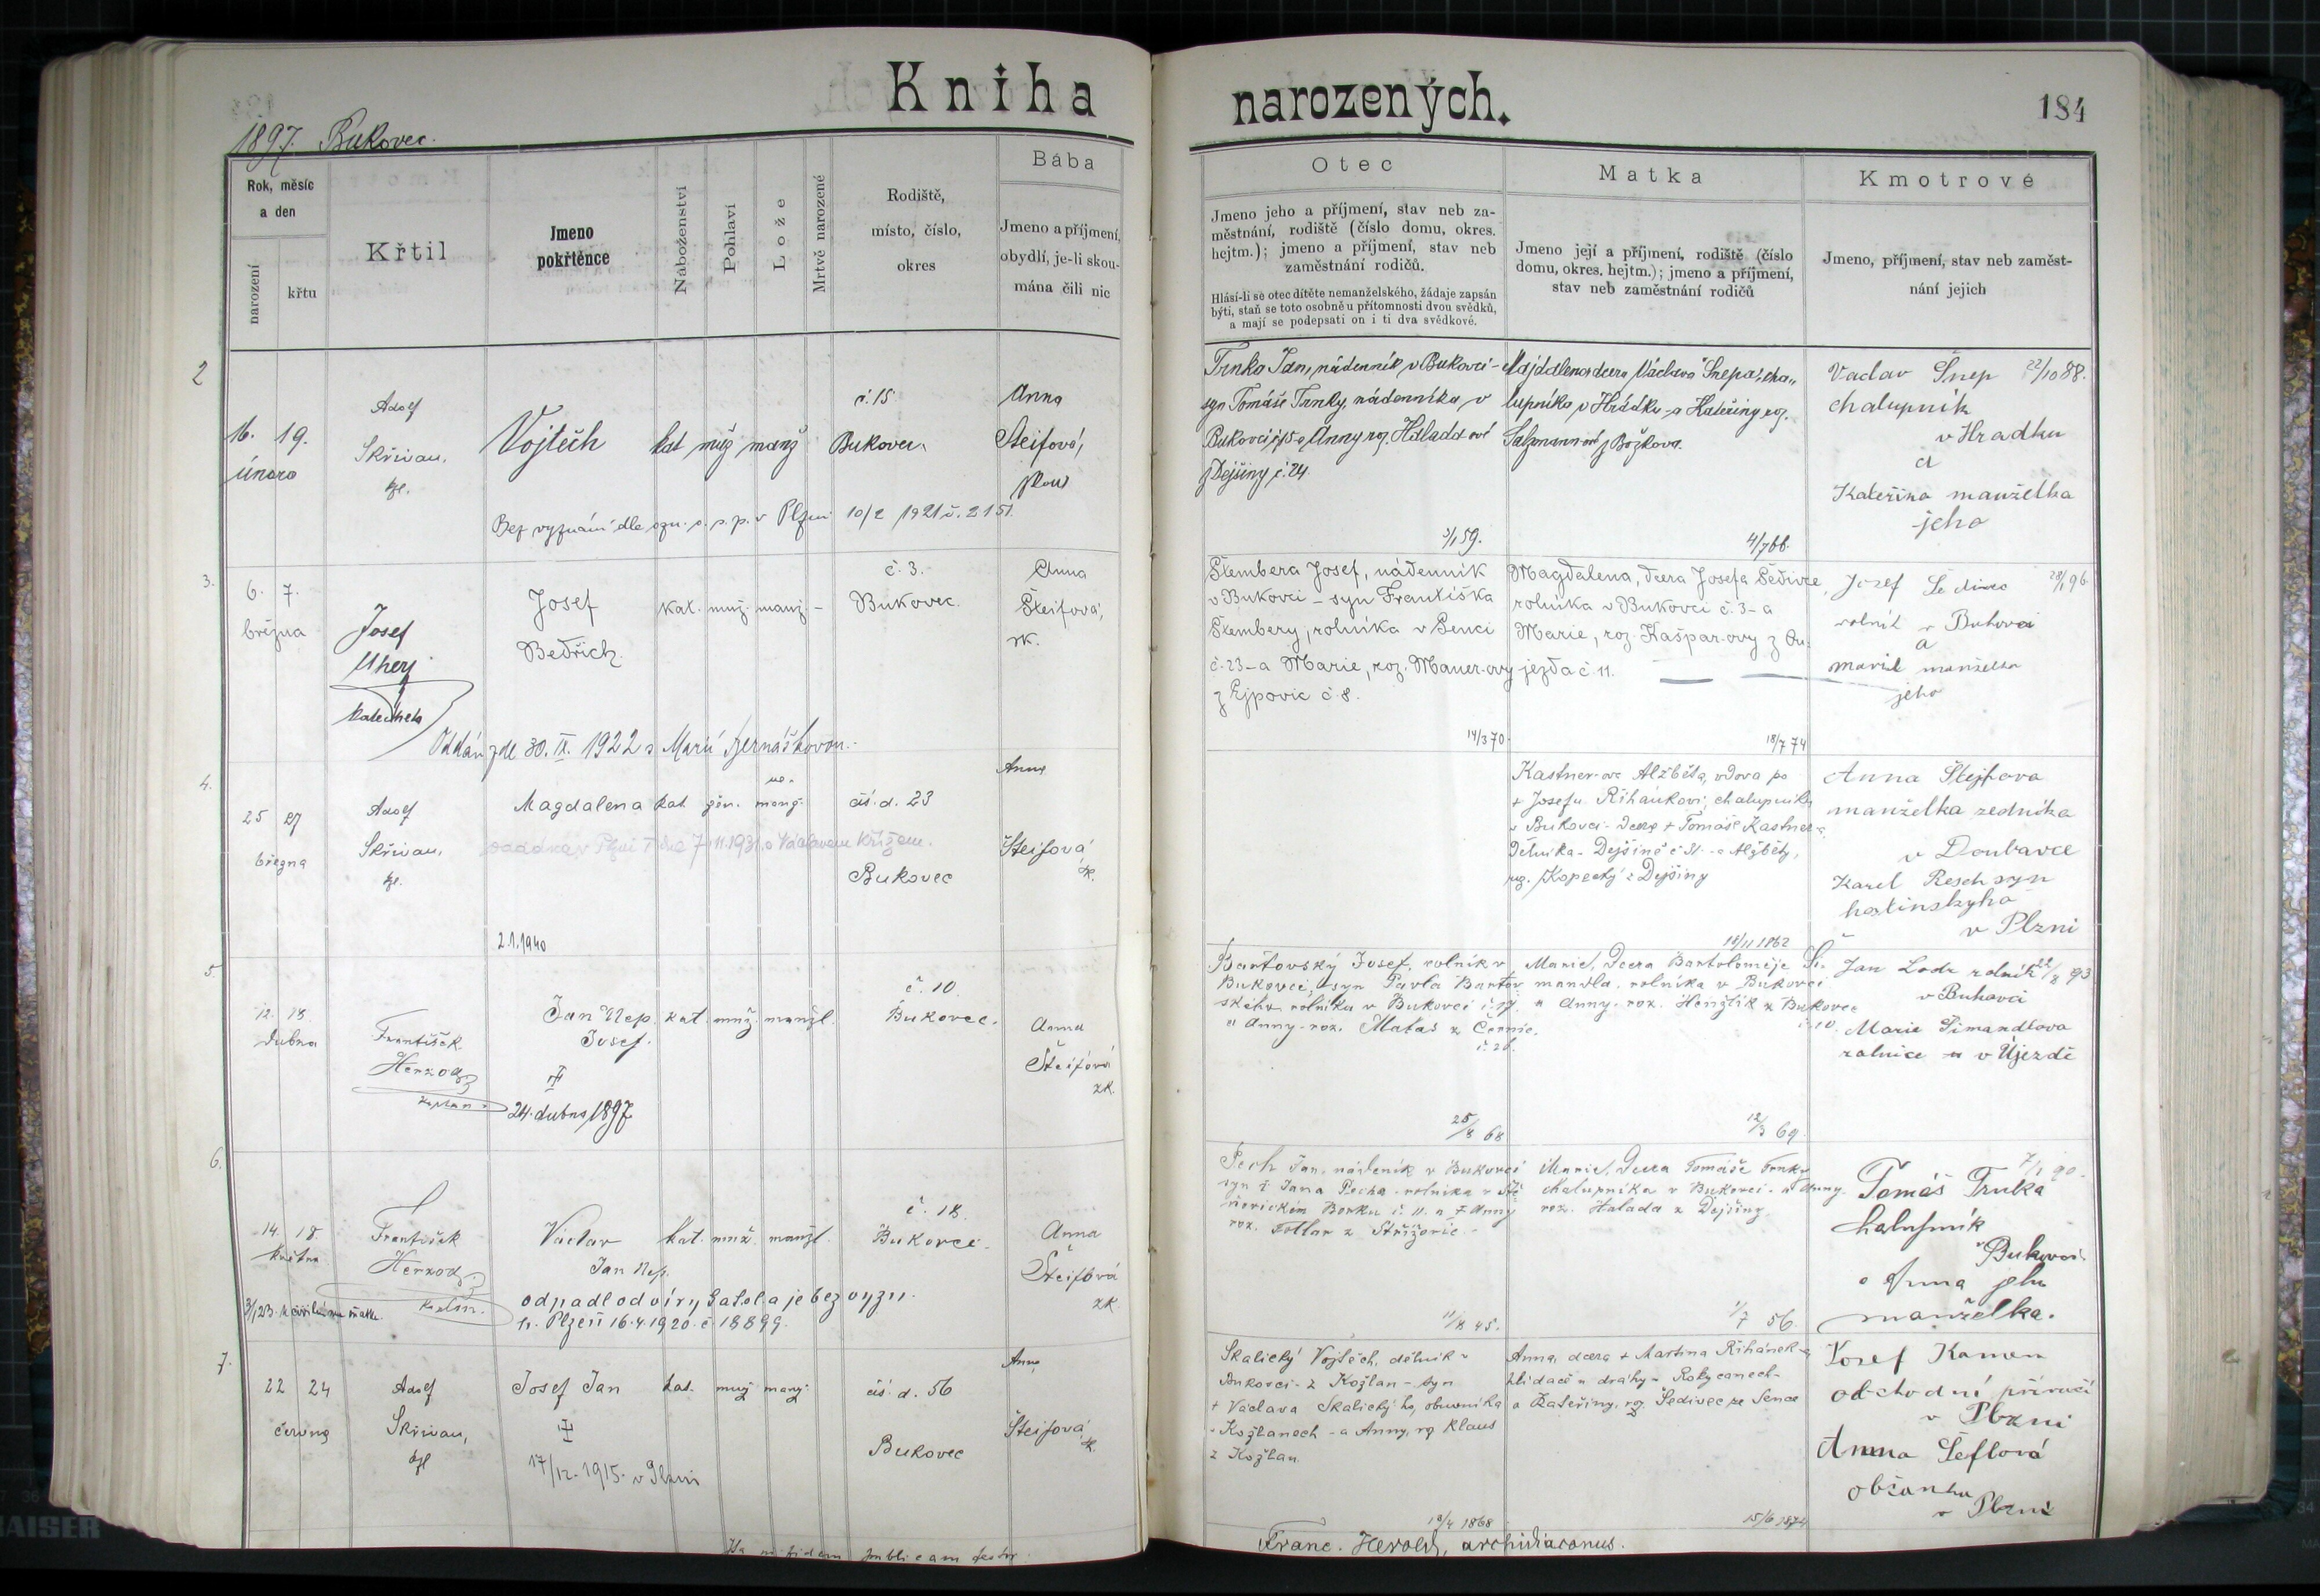 Kniha
narozených.
184
1897. Bukovec.
Rok, měsíc
a den
narození
křtu
Křtil
Jmeno
pokřtěnce
Náboženství
Pohlaví
Lože
Mrtvě narozené
Rodiště,
místo, číslo,
okres
Bába
Jmeno a příjmení,
obydlí, je-li skou-
mána čili nic
Otec
Jmeno jeho a příjmení, stav neb za-
městnání, rodiště (číslo domu, okres.
hejtm.); jmeno a příjmení, stav neb
zaměstnání rodičů.
Hlásí-li se otec dítěte nemanželského, žádaje zapsán
býti, staň se toto osobně u přítomnosti dvou svědků,
a mají se podepsati on i ti dva svědkové.
Matka
Jmeno její a příjmení, rodiště (číslo
domu, okres. hejtm.); jmeno a příjmení,
stav neb zaměstnání rodičů
Kmotrové
Jmeno, příjmení, stav neb zaměst-
nání jejich
2
16. 19.
února
Adolf
Skřivan,
kpl.
Vojtěch
kat muž manž
č. 15
Bukovec
Anna
Šteifová,
Bez vyznání dle ozn. o. s. p. v Plzni 10/2 1921 č. 2151.
Trnka Jan, nádenník v Bukovci -
syn Tomáše Trnky, nádenníka v
Bukovci č. 15 a Anny roz. Haladové
z Dejšiny č. 24.
5/1 59.
Majdalena dcera Václava Šnepa, cha„
lupníka v Hrádku a Kateřiny roz.
Salzmannové z Božkova.
4/7 66.
Vaclav Šnep 22/10 88.
chalupník
v Hradku
a
Kateřina manželka
jeho
3.
6. 7.
března
Josef
Uherj
katecheta
Josef
Bedřich.
kat. muž. manž. -
č. 3.
Bukovec.
Anna
Šteifová,
zk.
Oddán zde 30. IX. 1922 s Marií Bernáškovou.
Štembera Josef, nádenník
v Bukovci - syn Františka
Štembery, rolníka v Senci
č. 23 - a Marie, roz. Mauer-ovy
z Ejpovic č. 8.
14/3 70.
Magdalena, dcera Josefa Šedivce,
rolníka v Bukovci č. 3 - a
Marie, roz. Kašpar-ovy z Ou-
jezda č. 11.
18/7 74
Josef Šedivec 28/1 96
rolník v Bukovci
a
Marie manželka
jeho
4.
25 27
března
Adolf
Skřivan,
kpl.
Magdalena kat žen. manž.
ne-
oddána v Plzni I dne 7.11.1931 s Václavem Křížem.
čís. d. 23
Bukovec
Anna
Šteifová
zk.
2.1.1940
Kastner-ova Alžběta, vdova po
+ Josefu Řihánkovi, chalupníku
v Bukovci - dcera + Tomáše Kastnera,
dělníka - Dejšině č 31. - a Alžběty,
roz. Kopecký z Dejšiny
18/11 1862
Anna Štejfova
manželka zedníka
v Doubravce
Karel Resch syn
hostinskyho
v Plzni
5.
12. 18.
dubna
František
Herzog
kaplan
Jan Nep.
Josef.
kat. muž. manžl.
č. 10.
Bukovec.
Anna
Šteifová
zk.
24. dubna 1897
Bartovský Josef, rolník v
Bukovci, syn Pavla Bartov
ského rolníka v Bukovci č. 19.
a Anny roz. Mataš z Černic.
č. 26.
25/8 68
Marie, dcera Bartoloměje Ši-
mandla, rolníka v Bukovci
a Anny roz. Henžlík z Bukovce
č. 10.
12/3 69.
Jan Lodr rolník 22/8 93
v Bukovci
Marie Šimandlova
rolnice v Újezdě
6.
14. 18.
května
František
Herzog
kaplan.
Václav
Jan Nep.
kat. muž. manžl.
č. 18.
Bukovec.
Anna
Šteifová
zk.
odpadl od víry katol. a je bez vyzn.
h. Plzeň 16.4.1920. č 18899.
Pech Jan, nádeník v Bukovci
syn + Jana Pecha - rolníka v Stě
novickém Borku č. 11. a + Anny
roz. Tollar z Střížovic.
11/8 45.
Marie, dcera Tomáše Trnky
chalupníka v Bukovci - a Anny
roz. Halada z Dejšiny
1/7 56.
7/1 90.
Tomáš Trnka
halupník
v Bukovci
a Anna jeho
manželka.
7.
22 24
června
Adolf
Skřivan,
kpl
Josef Jan
kat. muž manž
čís. d. 56
Bukovec
Anna
Šteifová
zk.
17/12. 1915. v Plzni
Skalický Vojtěch, dělník v
Bukovci - z Kožlan - syn
+ Václava Skalický-ho, obuvníka
v Kožlanech - a Anny, roz Klaus
z Kožlan.
18/4 1868
Anna, dcera + Martina Řihánek-a,
hlídače u dráhy - Rokycanech -
a Kateřiny, roz. Šedivec ze Sence
15/6 1874
Josef Kaman
obchodní příručí
v Plzni
Anna Šeflová
občanka
v Plzni
Franc. Herold, archidiaconus.